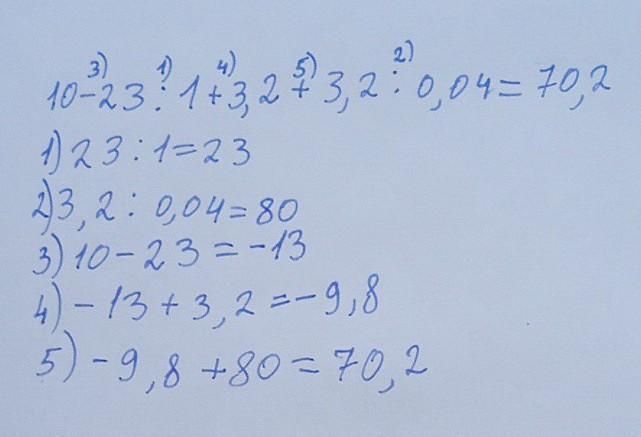 3) 1) 4) 5) 2)
10-23:1+3,2+3,2:0,04=70,2
1) 23:1=23
2) 3,2:0,04=80
3) 10-23=-13
4) -13+3,2=-9,8
5) -9,8+80=70,2